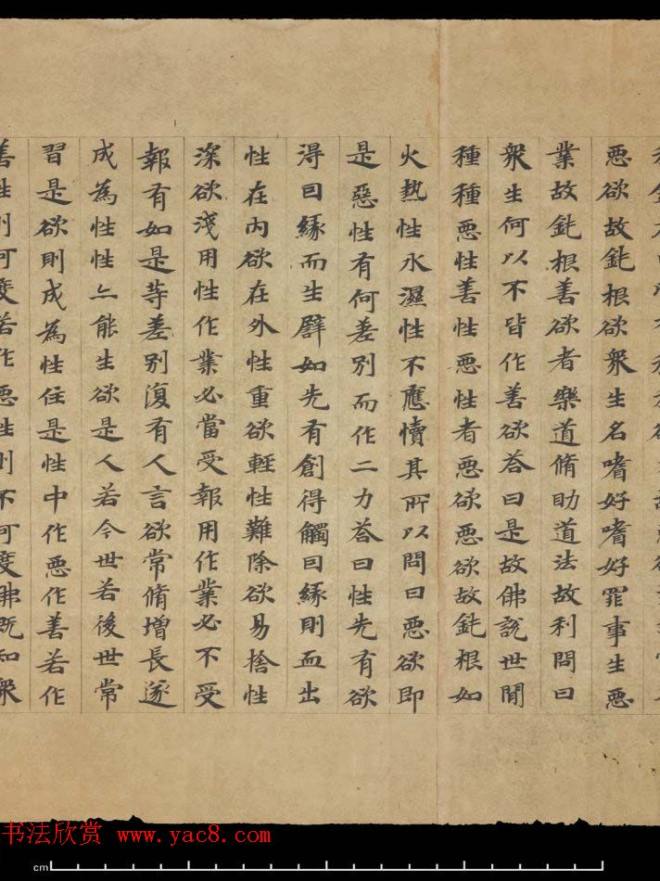 悪欲故鈍根欲衆生名嗜好嗜好罪事生悪
業故鈍根善欲者樂道脩助道法故利問曰
衆生何以不皆作善欲荅曰是故佛說世間
種種悪性善性悪性者悪欲悪欲故鈍根如
火熱性水濕性不應責其所以問曰悪欲即
是惡性有何差別而作二力荅曰性先有欲
淂因緣而生譬如先有創得觸因緣則血出
性在内欲在外性重欲輕性難除欲易捨性
深欲淺用性作業必當受報用作業必不受
報有如是等差別復有人言欲常脩增長遂
成為性性亦能生欲是人若今世若後世常
習是欲則成為性住是性中作悪作善若作
善性則可度若作悪性則不可度佛既知衆
书法欣赏 www.yac8.com
cm